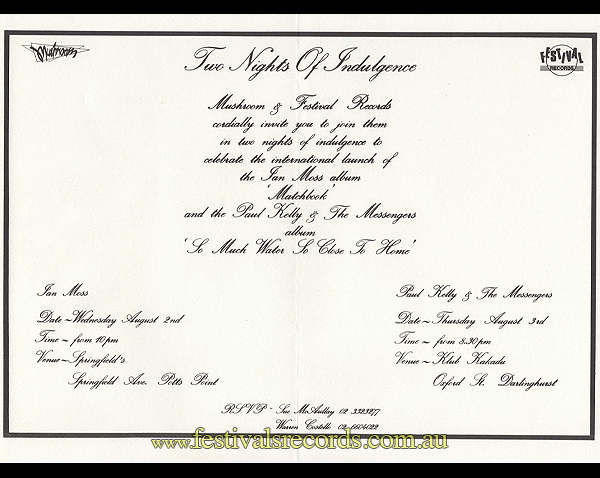 Mushroom
FESTIVAL
RECORDS
Two Nights Of Indulgence
Mushroom & Festival Records
cordially invite you to join them
in two nights of indulgence to
celebrate the international launch of
the Ian Moss album
'Matchbook'
and the Paul Kelly & The Messengers
album
'So Much Water So Close To Home'
Ian Moss
Date ~ Wednesday August 2nd
Time ~ from 10pm
Venue ~ Springfield's
Springfield Ave. Potts Point
Paul Kelly & The Messengers
Date ~ Thursday August 3rd
Time ~ from 8.30pm
Venue ~ Klub Kakadu
Oxford St. Darlinghurst
RSVP - Sue McAullay 02 3323277
Warren Costello 02 6604022
www.festivalsrecords.com.au